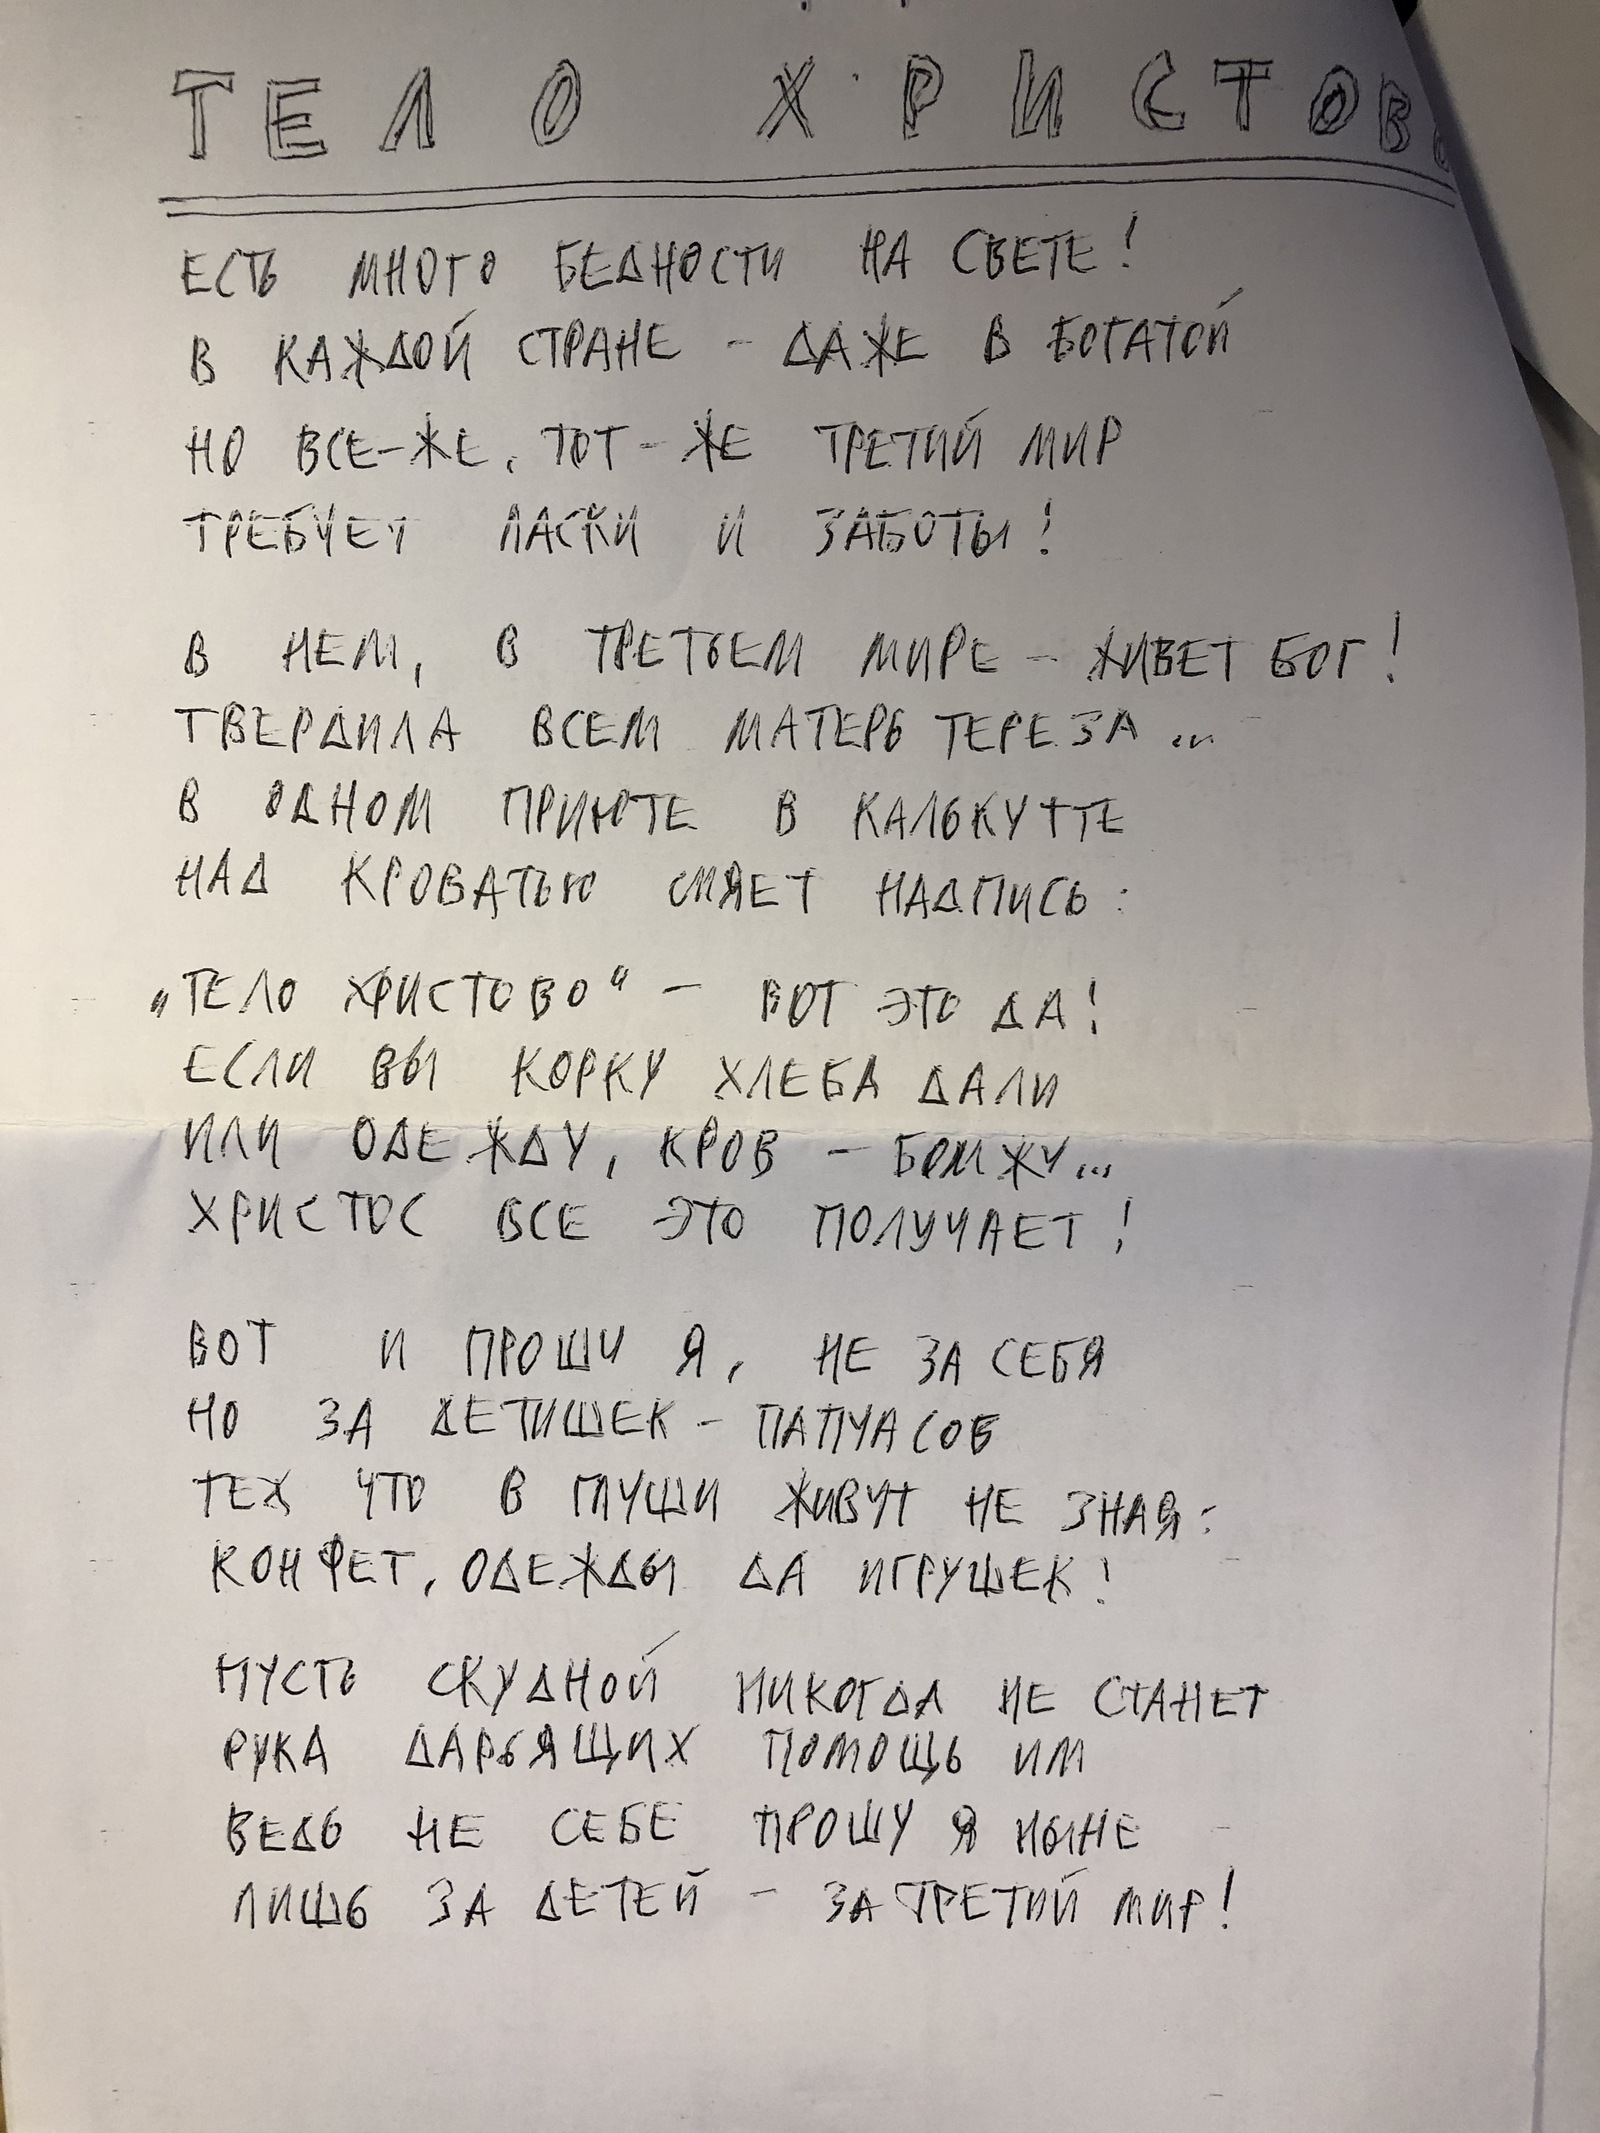 ТЕЛО ХРИСТОВО
ЕСТЬ МНОГО БЕДНОСТИ НА СВЕТЕ!
В КАЖДОЙ СТРАНЕ - ДАЖЕ В БОГАТОЙ
НО ВСЕ-ЖЕ, ТОТ-ЖЕ ТРЕТИЙ МИР
ТРЕБУЕТ ЛАСКИ И ЗАБОТЫ!
В НЕМ, В ТРЕТЬЕМ МИРЕ - ЖИВЕТ БОГ!
ТВЕРДИЛА ВСЕМ МАТЕРЬ ТЕРЕЗА...
В ОДНОМ ПРИЮТЕ В КАЛЬКУТТЕ
НАД КРОВАТЬЮ СИЯЕТ НАДПИСЬ:
„ТЕЛО ХРИСТОВО" - ВОТ ЭТО ДА!
ЕСЛИ ВЫ КОРКУ ХЛЕБА ДАЛИ
ИЛИ ОДЕЖДУ, КРОВ - БОМЖУ...
ХРИСТОС ВСЕ ЭТО ПОЛУЧАЕТ!
ВОТ И ПРОШУ Я, НЕ ЗА СЕБЯ
НО ЗА ДЕТИШЕК - ПАПУАСОВ
ТЕХ ЧТО В ГЛУШИ ЖИВУТ НЕ ЗНАЯ:
КОНФЕТ, ОДЕЖДЫ ДА ИГРУШЕК!
ПУСТЬ СКУДНОЙ НИКОГДА НЕ СТАНЕТ
РУКА ДАРЬЯЩИХ ПОМОЩЬ ИМ
ВЕДЬ НЕ СЕБЕ ПРОШУ Я НЫНЕ
ЛИШЬ ЗА ДЕТЕЙ - ЗА ТРЕТИЙ МИР!